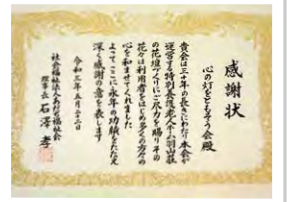 感謝状
心の灯をともそう会殿
貴会は三ヶ年の長きにわたり本会が
運営する特別養護老人ホーム羽山荘
の花壇づくりにご尽力を賜りその
花々は利用者をはじめ多くの方々の
心を和ませてくれました
よってここに永年の功績をたたえ
深く感謝の意を表します
令和三年五月二十二日
社会福祉法人あだち福祉会
理事長 石澤 孝